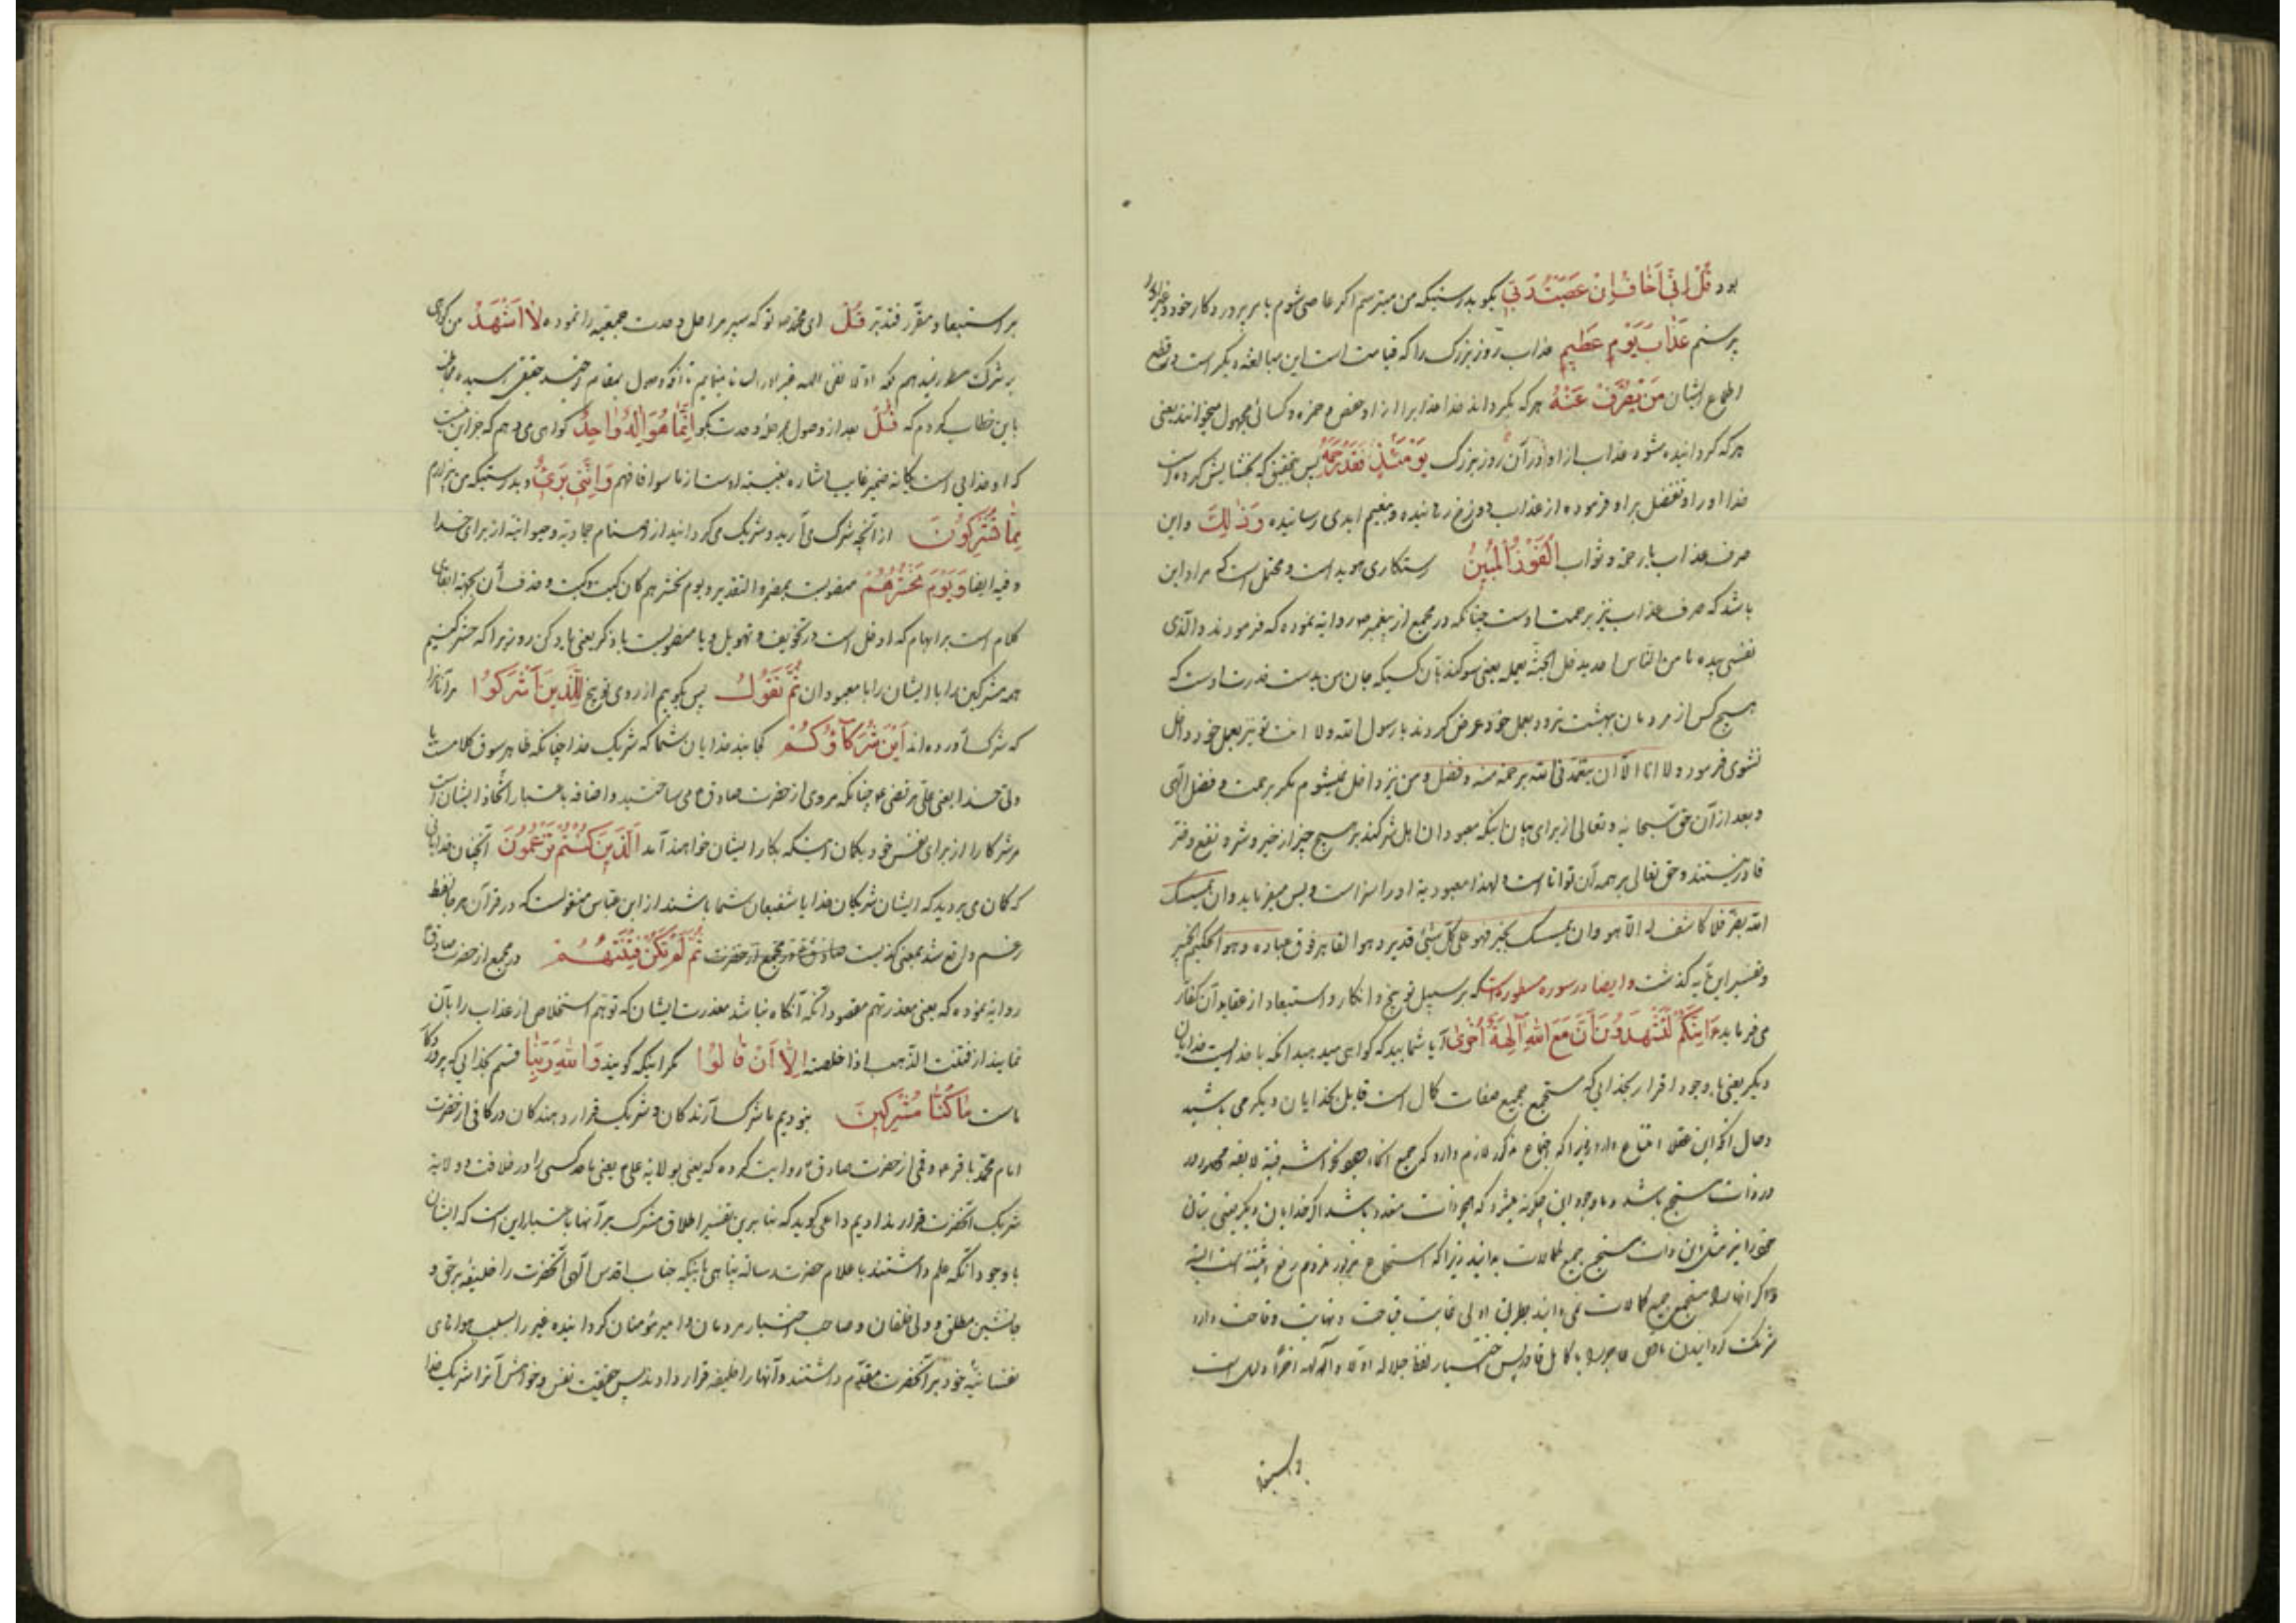 بود قُلْ اِنّی اَخافُ اِنْ عَصَیْتُ رَبّی بگو بدرستیکه من میترسم اگر عاصی شوم بامر پروردگار خود و غیر او را
پرستم عَذابَ یَوْمٍ عَظیمٍ عذاب روز بزرگ را که قیامت است این مبالغه دیگر است در قطع
اطماع ایشان مَنْ یُصْرَفْ عَنْهُ هر که بگرداند خدا عذاب را از او حفص و حمزه و کسائی مجهول میخوانند یعنی
هر که گردانیده شود عذاب از او در آن روز بزرگ یَوْمَئِذٍ فَقَدْ رَحِمَهُ پس بتحقیق که بخشایش کرده است
خدا او را و تفضل بر او فرموده از عذاب دوزخ رهانیده و بنعیم ابدی رسانیده وَذٰلِكَ و این
صرف عذاب یا رحمة و ثواب اَلْفَوْزُ الْمُبینُ رستکاری هویداست و محتمل است که مراد این
باشد که صرف عذاب نیز برحمت اوست چنانکه در مجمع از پیغمبر ص روایة نموده که فرمودند والّذی
نفسی بیده ما من النّاس احد یدخل الجنّة بعمله یعنی سوکند بآن کسیکه جان من بدست قدرت اوست که
هیچ کس از مردمان ببهشت نرود بعمل خود عرض کردند یا رسول الله ولا انت تو نیز بعمل خود داخل
نشوی فرمود ولا انا الّا ان یتغمّدنی الله برحمة منه وفضل و من نیز داخل نمیشوم مگر برحمت و فضل الهی
و بعد از آن حق سبحانه و تعالی از برای بیان اینکه معبودان اهل شرک بر هیچ چیز از خیر و شر و نفع و ضرّ
قادر نیستند و حق تعالی بر همه آن تواناست و لهذا معبودیة او را سزاست و بس میفرماید وان یمسسك
الله بضرّ فلا کاشف له الّا هو وان یمسسك بخیر فهو علی کلّ شئ قدیر وهو القاهر فوق عباده وهو الحکیم الخبیر
و تفسیر این آیه گذشت و ایضا در سوره مسطوره است که بر سبیل توبیخ و انکار و استبعاد از عقاید آن کفار
می فرماید ءَاِنَّکُمْ لَتَشْهَدُونَ اَنَّ مَعَ اللهِ آلِهَةً اُخْریٰ آیا شمایید که گواهی میدهید انکه با خداست خدایان
دیگر یعنی با وجود اقرار بخدایی که مستجمع جمیع صفات کمال است قایل بخدایان دیگر می باشید
و حال انکه این عقلا امتناع دارد زیرا که
در ذات مستجمع باشد و با وجود این چگونه میشود که
شریک گردانیدن ناقص عاجز را با کامل قادر پس اختیار لفظ جلاله اولا و آلهه اخرا دلیل است
بر استبعاد
بر استبعاد و مقرّر فتدبّر قُلْ ای محمد ص تو که سیر مراحل وحدت جمعیّه را نموده لا اَشْهَدُ من گواهی
باین خطاب کردم که قُلْ بعد از وصول مرحله وحدت بگو اِنَّما هُوَ اِلٰهٌ واحِدٌ گواهی می دهم که جز این نیست
که او خدایی است یگانه ضمیر غایب اشاره بغیبة اوست از ما سوا فافهم وَاِنَّنی بَریٌ و بدرستیکه من بیزارم
مِمّا تُشْرِکُونَ از آنچه شرک می آرید و شریک می گردانید از اصنام جمادیّة و حیوانیّة از برای خدا
و فیه ایضا وَیَوْمَ نَحْشُرُهُمْ منصوبست بمضمر والتقدیر ویوم نحشرهم کان کیت وکیت و حذف آن بجهة ابقای
کلام است بر ابهام که ادخل است در تخویف و تهویل و یا منصوبست باذکر یعنی یاد کن روزیرا که حشر کنیم
همه مشرکین را با ایشان را با معبودان ثُمَّ نَقُولُ پس بگوییم از روی توبیخ لِلَّذینَ اَشْرَکُوا مر آنانرا
که شرک آورده اند اَیْنَ شُرَکاؤُکُمْ کجایند خدایان شما که شریک خدا چنانکه ظاهر سوق کلامست یا
ولیّ خدا یعنی علی مرتضی ع چنانکه مروی از حضرت صادق ع می ساختید و اضافه باعتبار اتّخاذ ایشان است
مر شرکا را از برای نفس خود بگمان اینکه بکار ایشان خواهند آمد اَلَّذینَ کُنْتُمْ تَزْعُمُونَ آنچنان خدایانی
که گمان می بردید که ایشان شریکان خدا یا شفیعان شما باشند از ابن عباس منقولست که در قرآن هر جا لفظ
زعم واقع شد بمعنی کذبست ثُمَّ لَمْ تَکُنْ فِتْنَتُهُمْ در مجمع از حضرت صادق ع
روایة نموده که یعنی معذرتهم مقصود انکه آنگاه نباشد معذرت ایشان که توهّم استخلاص از عذاب را بآن
نمایند از فتنت الذّهب اذا خلصته اِلّا اَنْ قالُوا مگر اینکه گویند وَاللهِ رَبِّنا قسم بخدایی که پروردگار
ماست ماکُنّا مُشْرِکینَ نبودیم ما شرک آرندگان و شریک قرار دهندگان در کافی از حضرت
امام محمد باقر ع و قمی از حضرت صادق ع روایت کرده که یعنی بولایة علی ع یعنی ما کسی را در خلافت و ولایة
شریک آنحضرت قرار ندادیم داعی گوید که بنا برین تفسیر اطلاق مشرک بر آنها باعتبار این است که ایشان
با وجود آنکه علم داشتند باعلام حضرت رسالة پناهی باینکه جناب اقدس الهی آنحضرت را خلیفه بر حق و
جانشین مطلق و ولی خلقان و صاحب اختیار مردمان و امیر مؤمنان گردانیده غیر را بسبب هواهای
نفسانیّه خود بر آنحضرت مقدّم داشتند و آنها را خلیفه قرار دادند پس حقیقت نفس و خواهش آنرا شریک خدا